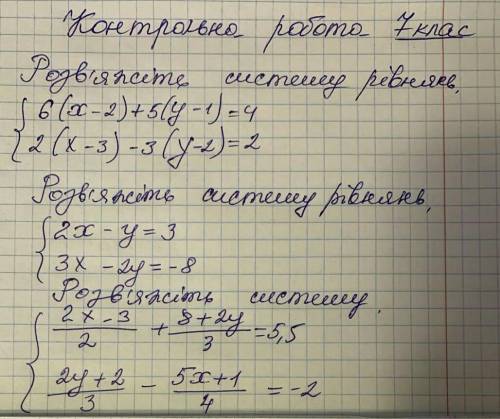 Контрольна робота 7 клас
Розв'яжіть систему рівнянь.
6(x-2)+5(y-1)=4
2(x-3)-3(y-2)=2
Розв'яжіть систему рівнянь.
2x-y=3
3x-2y=-8
Розв'яжіть систему.
(2x-3)/2 + (8+2y)/3 = 5,5
(2y+2)/3 - (5x+1)/4 = -2